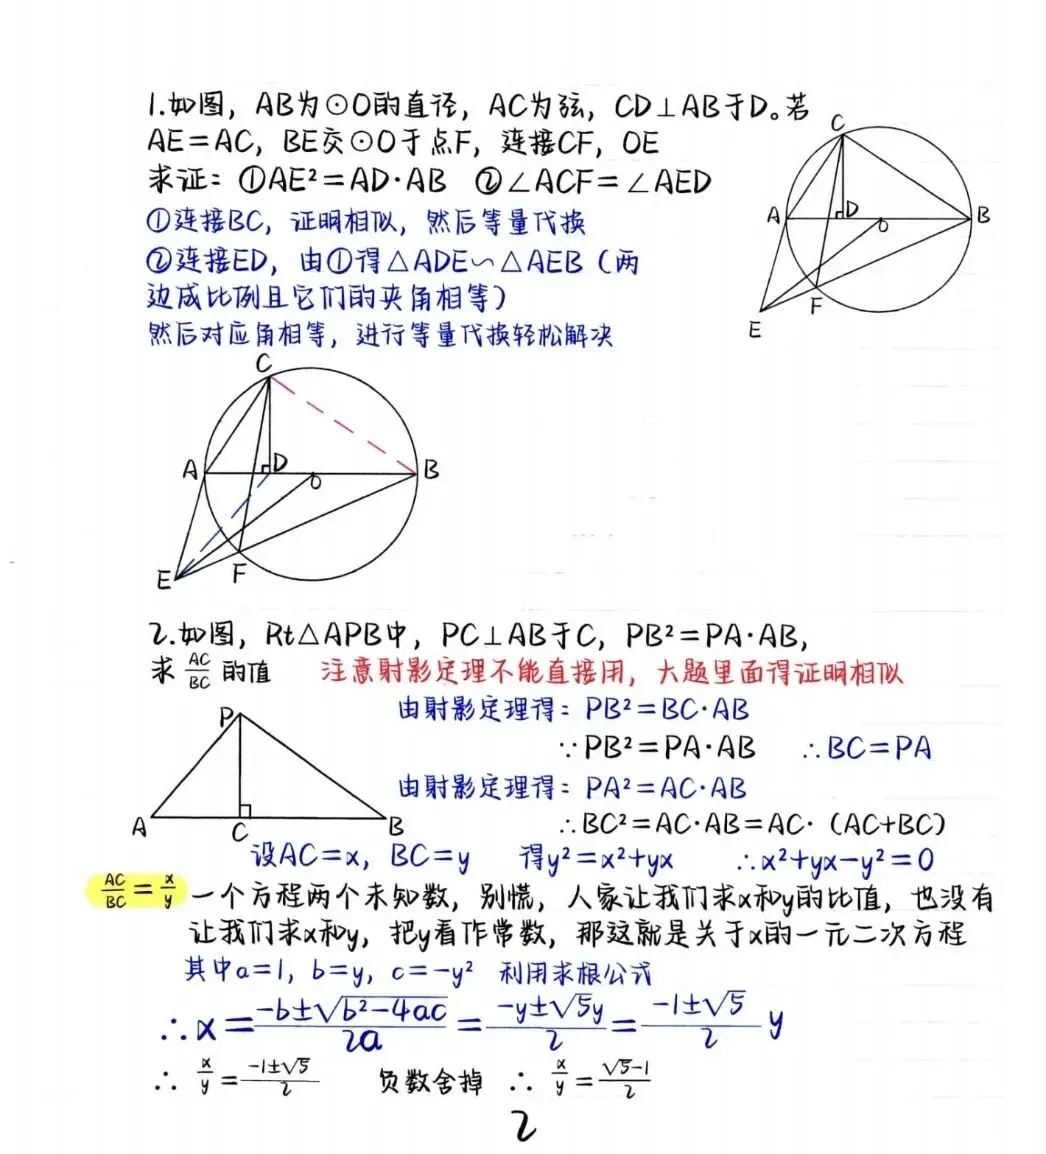 1.如图，AB为⊙O的直径，AC为弦，CD⊥AB于D。若
AE=AC，BE交⊙O于点F，连接CF，OE
求证：①AE²=AD·AB ②∠ACF=∠AED
①连接BC，证明相似，然后等量代换
②连接ED，由①得△ADE∽△AEB（两
边成比例且它们的夹角相等）
然后对应角相等，进行等量代换轻松解决
C
A
D
O
B
F
E
C
A
D
O
B
E
F
2.如图，Rt△APB中，PC⊥AB于C，PB²=PA·AB，
求 AC/BC 的值 注意射影定理不能直接用，大题里面得证明相似
由射影定理得：PB²=BC·AB
∵PB²=PA·AB ∴BC=PA
由射影定理得：PA²=AC·AB
∴BC²=AC·AB=AC·（AC+BC）
P
A
C
B
设AC=x，BC=y 得y²=x²+yx ∴x²+yx-y²=0
AC/BC=x/y 一个方程两个未知数，别慌，人家让我们求x和y的比值，也没有
让我们求x和y，把y看作常数，那这就是关于x的一元二次方程
其中a=1，b=y，c=-y² 利用求根公式
∴x=(-b±√(b²-4ac))/2a=(-y±√5y)/2=(-1±√5)/2 y
∴ x/y=(-1±√5)/2 负数舍掉 ∴ x/y=(√5-1)/2
2